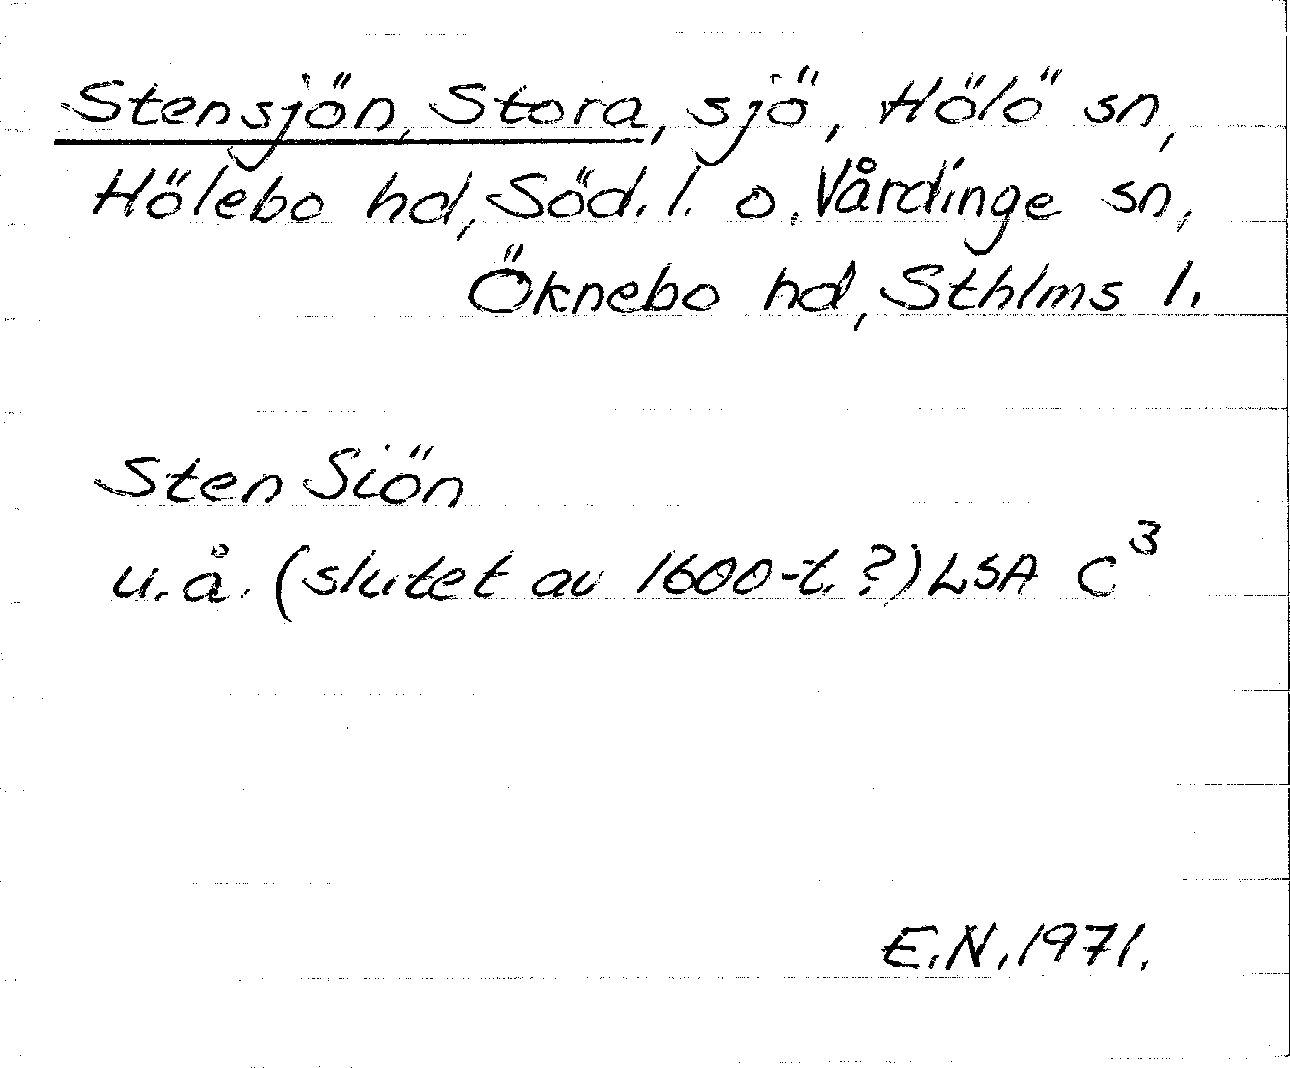 Stensjön, Stora, sjö, Hölö sn,
Hölebo hd, Söd. l. o. Vårdinge sn,
Öknebo hd, Sthlms l.
Sten Siön
u.å. (slutet av 1600-t.?) LSA C³
E.N. 1971.